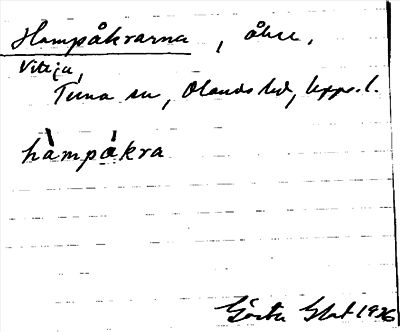 Hampåkrarna, åker.
Viteja,
Tuna sn, Olands hd, Upps. l.
hàmpåkra
Gösta 1936